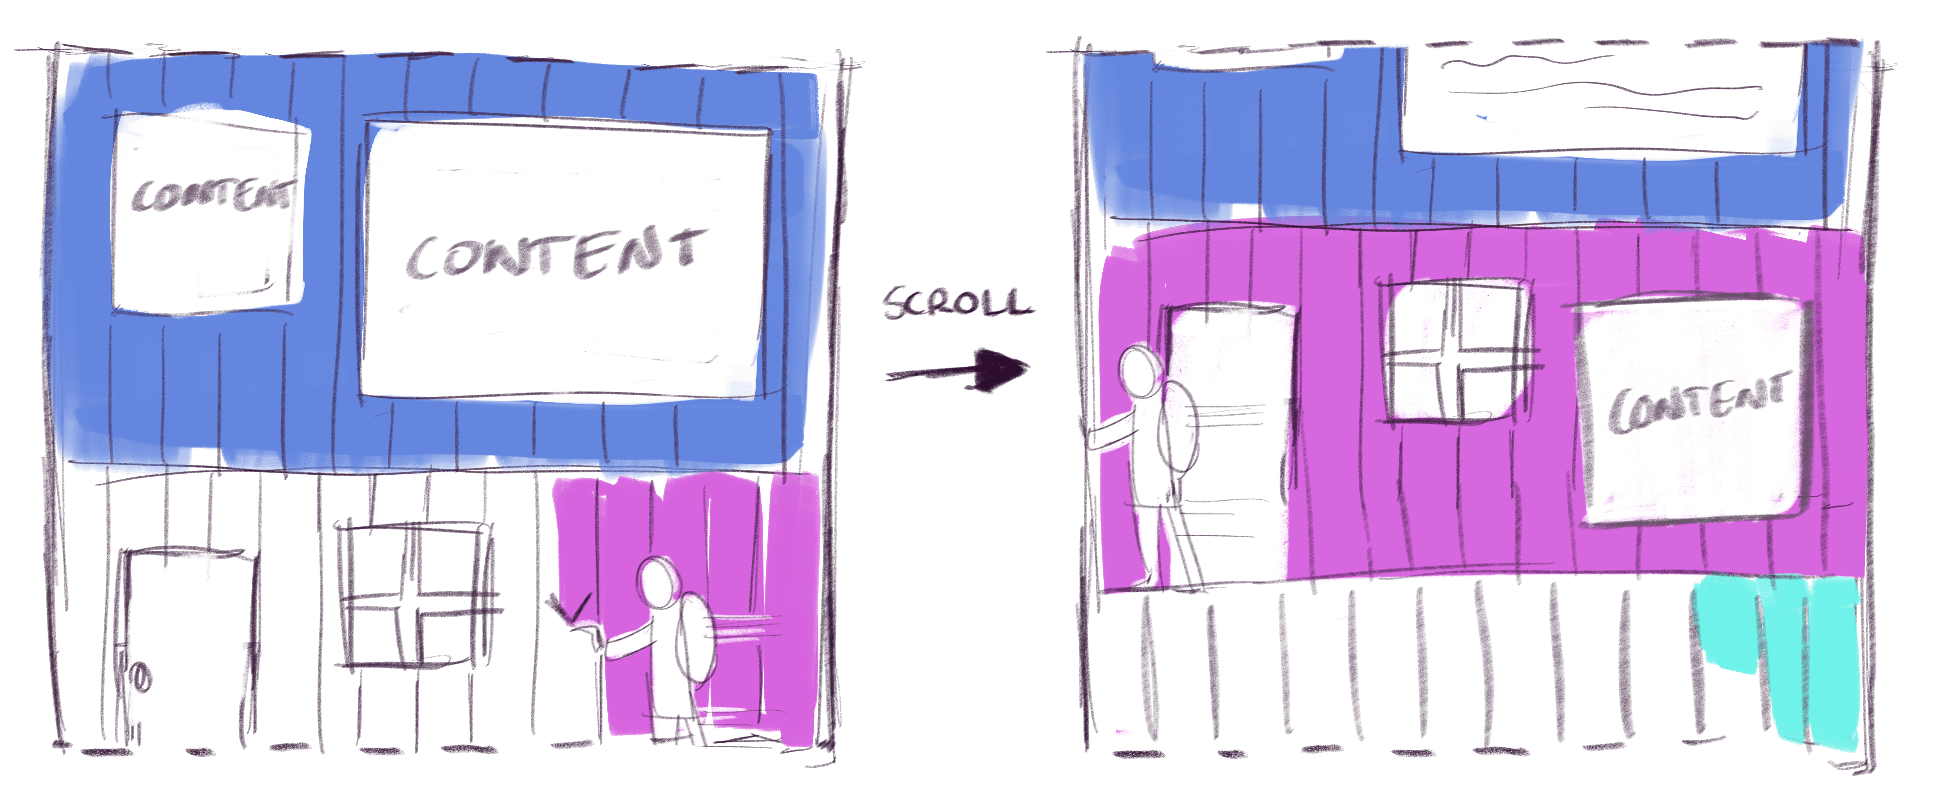 CONTENT
CONTENT
SCROLL
CONTENT